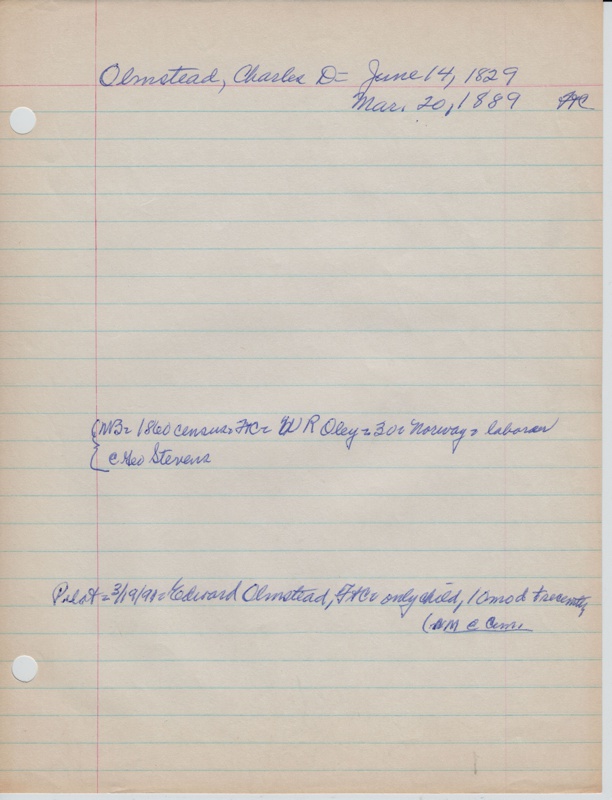 Olmstead, Charles D= June 14, 1829
Mar. 20, 1889 FtC
(NB= 1860 census= FtC= W R Oley= 30= Norway= laborer
c Geo Stevens
Pilot= 3/19/91= Edward Olmstead, FtC= only child, 10 mo d + recently
(M C Cem.